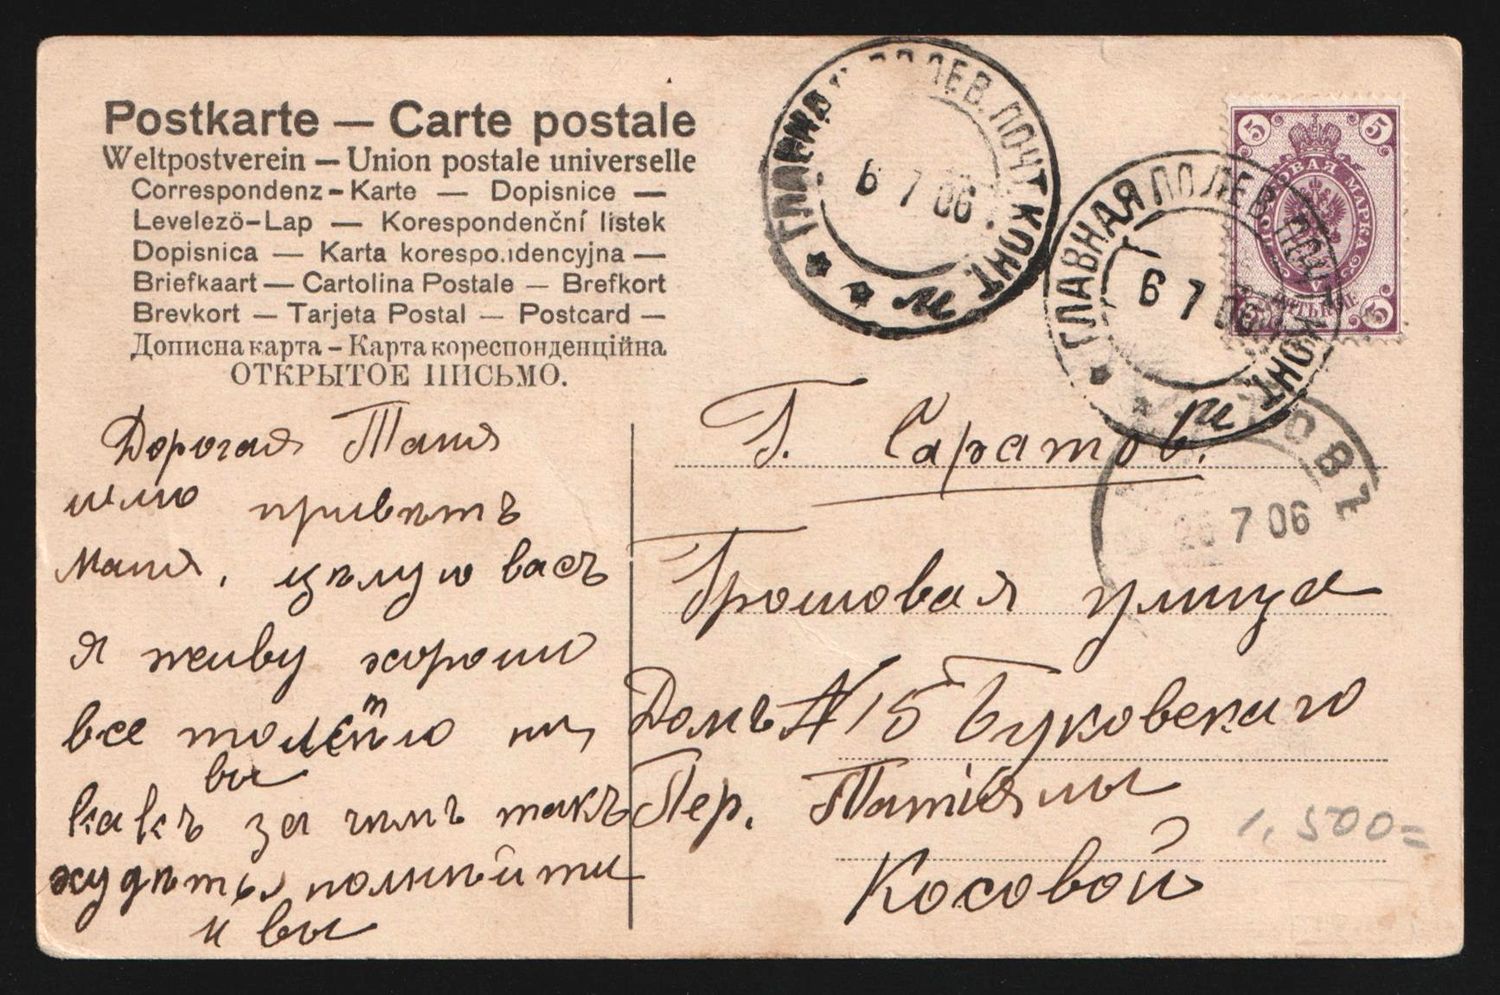 Postkarte — Carte postale
Weltpostverein — Union postale universelle
Correspondenz-Karte — Dopisnice —
Levelezö-Lap — Korespondenční listek
Dopisnica — Karta korespondencyjna —
Briefkaart — Cartolina Postale — Brefkort
Brevkort — Tarjeta Postal — Postcard —
Дописна карта – Карта кореспонденційна
ОТКРЫТОЕ ПИСЬМО.
ГЛАВНАЯ ПОЛЕВ. ПОЧТ. КОНТ.
6 7 06
и
5 5
ПОЧТОВАЯ МАРКА
5 5
ГЛАВНАЯ ПОЛЕВ. ПОЧТ. КОНТ.
6 7 06
и
ТОВЪ
26 7 06
Дорогая Таня
шлю приветъ
Маня, цѣлую васъ
я живу хорошо
все толстѣю
вы
какъ за чемъ такъ
худѣть,
и вы
Г. Саратов.
Грошовая улица
Домъ № 15 Буковскаго
Пер. Татіяны
Косовой
1,500=